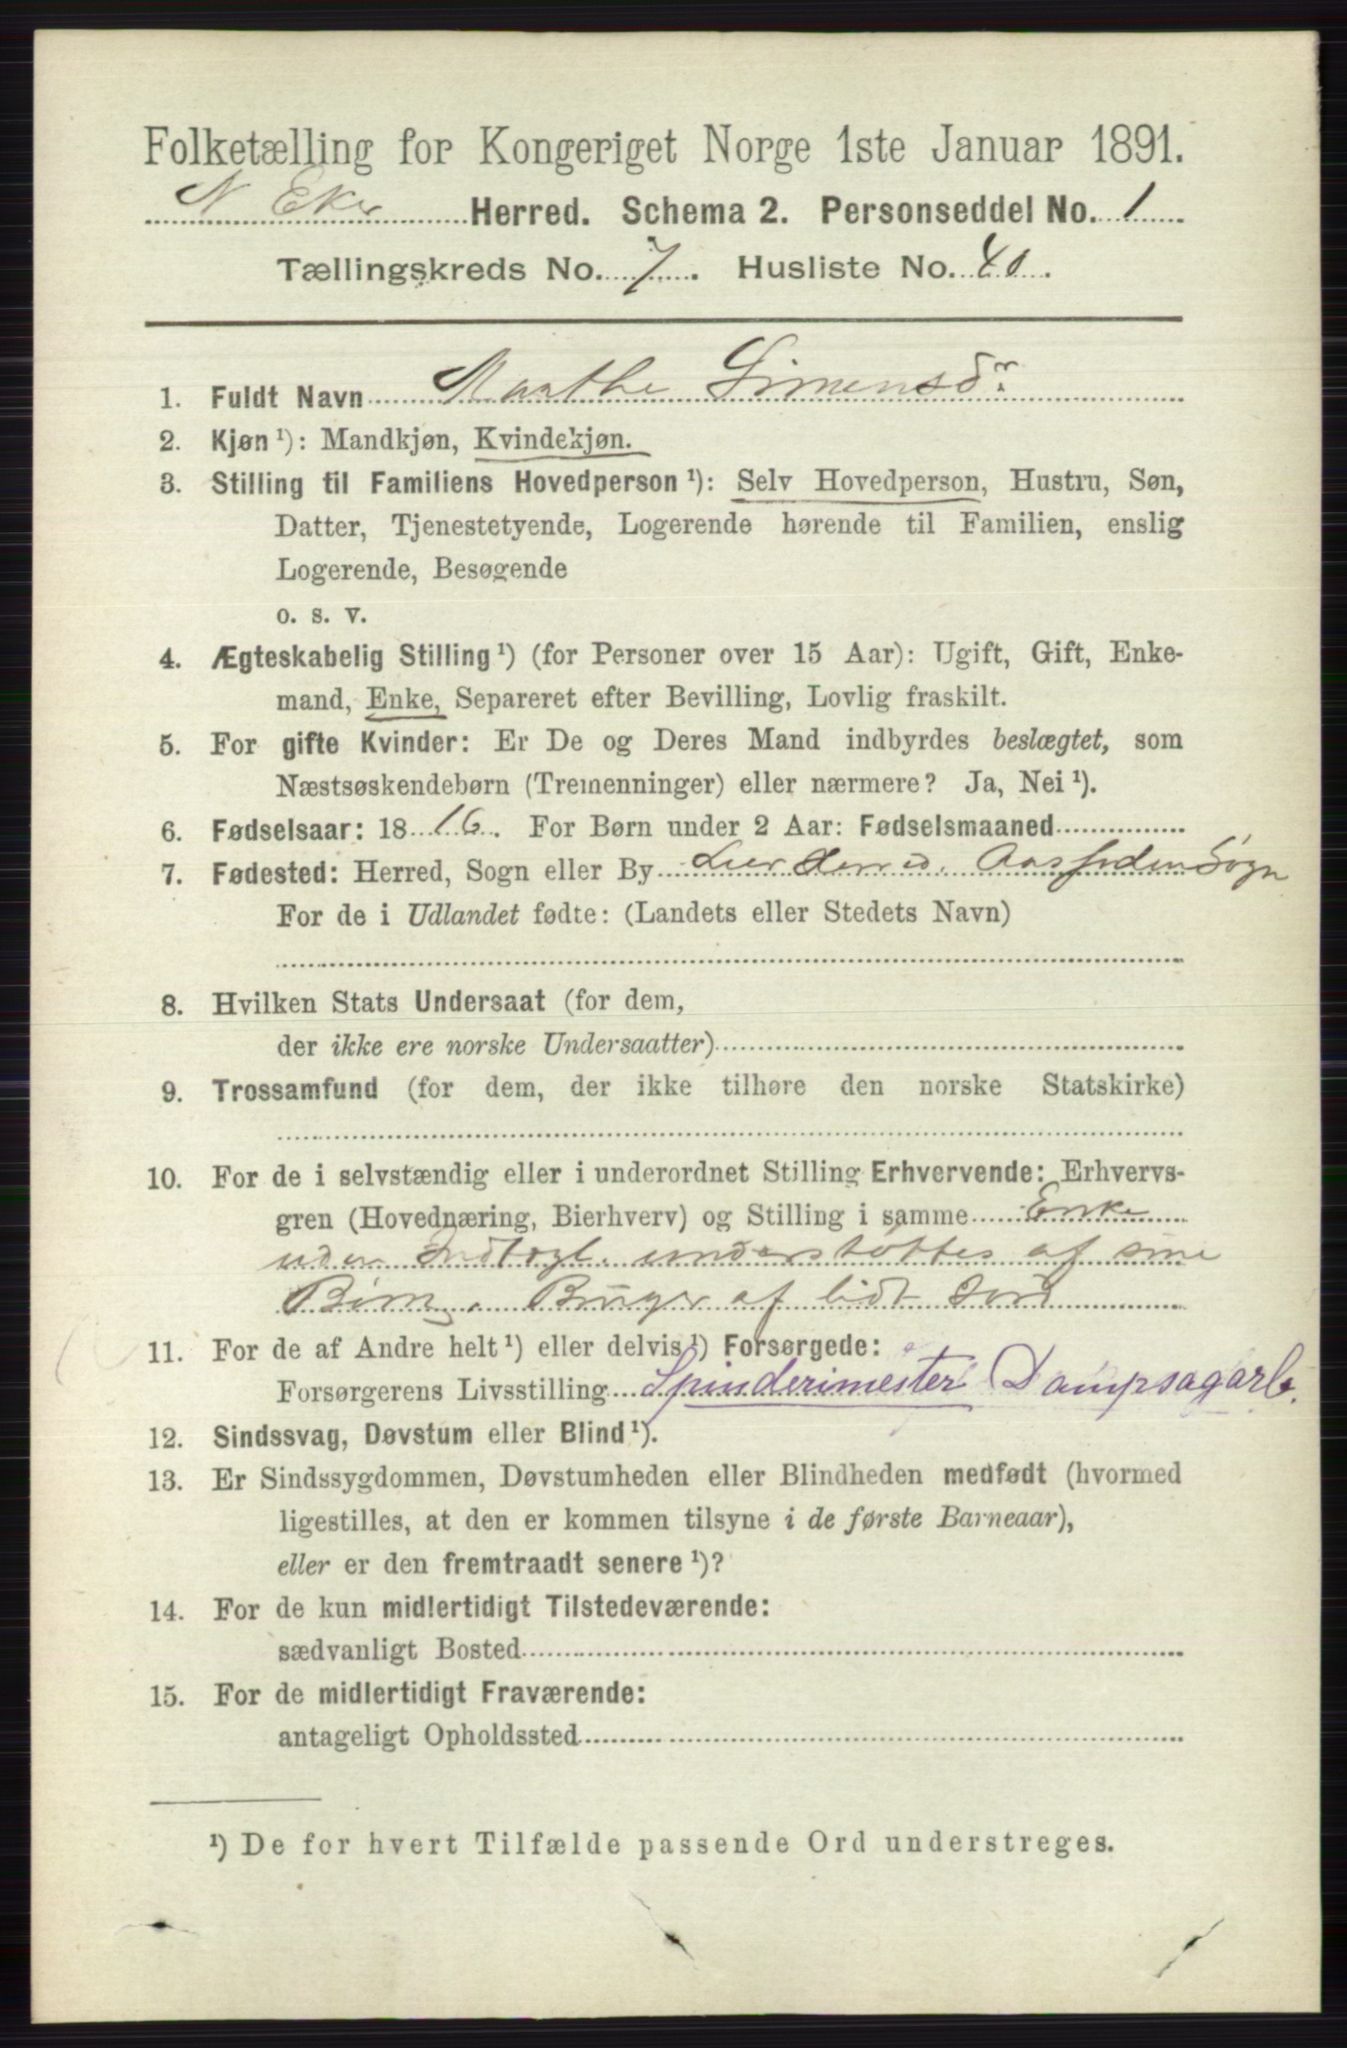 Folketælling for Kongeriget Norge 1ste Januar 1891.
N Eker Herred. Schema 2. Personseddel No. 1
Tællingskreds No. 7. Husliste No. 40.
1. Fuldt Navn Marthe Simensdr
2. Kjøn ¹): Mandkjøn, Kvindekjøn.
3. Stilling til Familiens Hovedperson ¹): Selv Hovedperson, Hustru, Søn,
Datter, Tjenestetyende, Logerende hørende til Familien, enslig
Logerende, Besøgende
o. s. v.
4. Ægteskabelig Stilling ¹) (for Personer over 15 Aar): Ugift, Gift, Enke-
mand, Enke, Separeret efter Bevilling, Lovlig fraskilt.
5. For gifte Kvinder: Er De og Deres Mand indbyrdes beslægtet, som
Næstsøskendebørn (Tremenninger) eller nærmere? Ja, Nei ¹).
6. Fødselsaar: 1816. For Børn under 2 Aar: Fødselsmaaned
7. Fødested: Herred, Sogn eller By Lier Herred. Sogn
For de i Udlandet fødte: (Landets eller Stedets Navn)
8. Hvilken Stats Undersaat (for dem,
der ikke ere norske Undersaatter)
9. Trossamfund (for dem, der ikke tilhøre den norske Statskirke)
10. For de i selvstændig eller i underordnet Stilling Erhvervende: Erhvervs-
gren (Hovednæring, Bierhverv) og Stilling i samme Enke
uden Indtægt. understøttes af sine
Børn. Bruger af lidt Jord
11. For de af Andre helt ¹) eller delvis ¹) Forsørgede:
Forsørgerens Livsstilling Spinderimester Dampsagarb.
12. Sindssvag, Døvstum eller Blind ¹).
13. Er Sindssygdommen, Døvstumheden eller Blindheden medfødt (hvormed
ligestilles, at den er kommen tilsyne i de første Barneaar),
eller er den fremtraadt senere ¹)?
14. For de kun midlertidigt Tilstedeværende:
sædvanligt Bosted
15. For de midlertidigt Fraværende:
antageligt Opholdssted
¹) De for hvert Tilfælde passende Ord understreges.